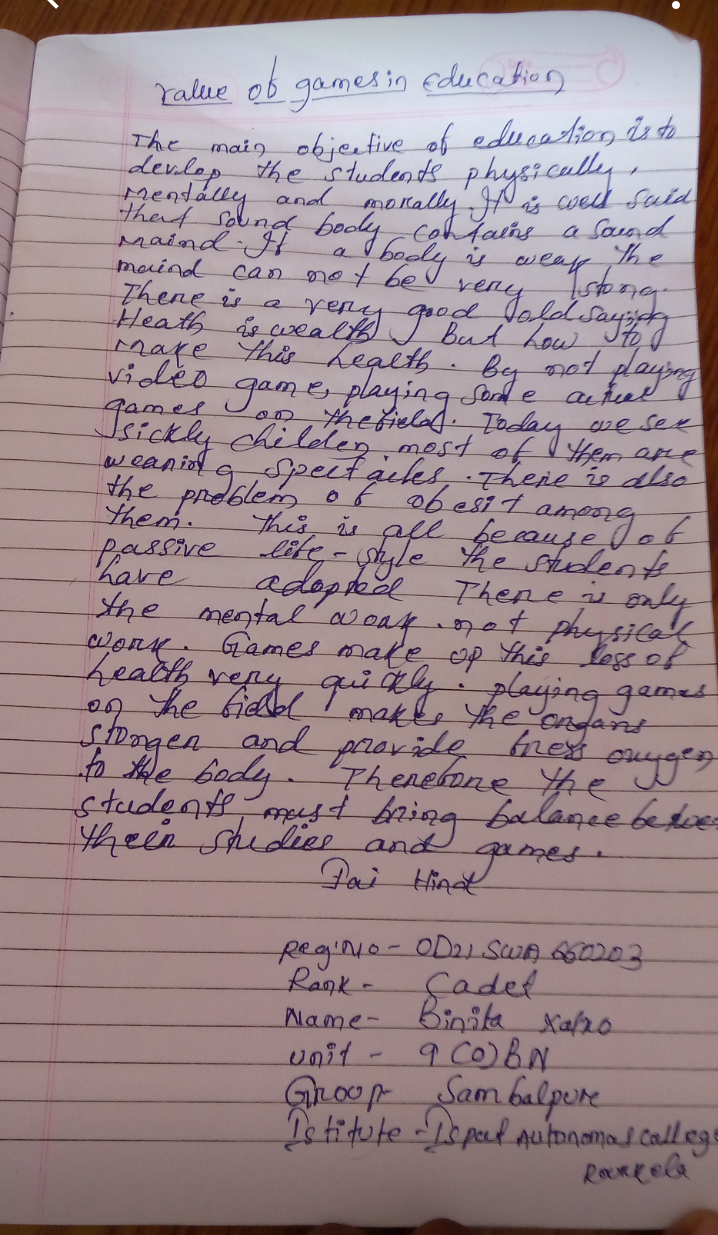 Value of games in Education
The main objective of education is to
devlop the students physically,
mentally and morally. It is well said
that sound body contains a sound
maind. If a body is weak the
maind can not be very stong.
There is a very good old saying
Heath is wealth But how to
make this health. By not playing
video game, playing some actual
games on the field. Today we see
sickly childen. most of them are
weaning spectacles. There is also
the problem of obesit among
them. This is all because of
passive life-style the students
have adopted There is only
the mental work. not physical
work. Games make op this loss of
health very quickly. playing games
on the field makes the organs
stonger and provide fress oxygen
to the body. Therefore the
students must bring balance betwee
their studies and games.
Jai Hind
Reg'No - OD21SWA660203
Rank - Cadet
Name - Binita Xalxo
unit - 9(O)BN
Groop - Sambalpure
Istitute - Ispat Autonomas colleg
Rourkela